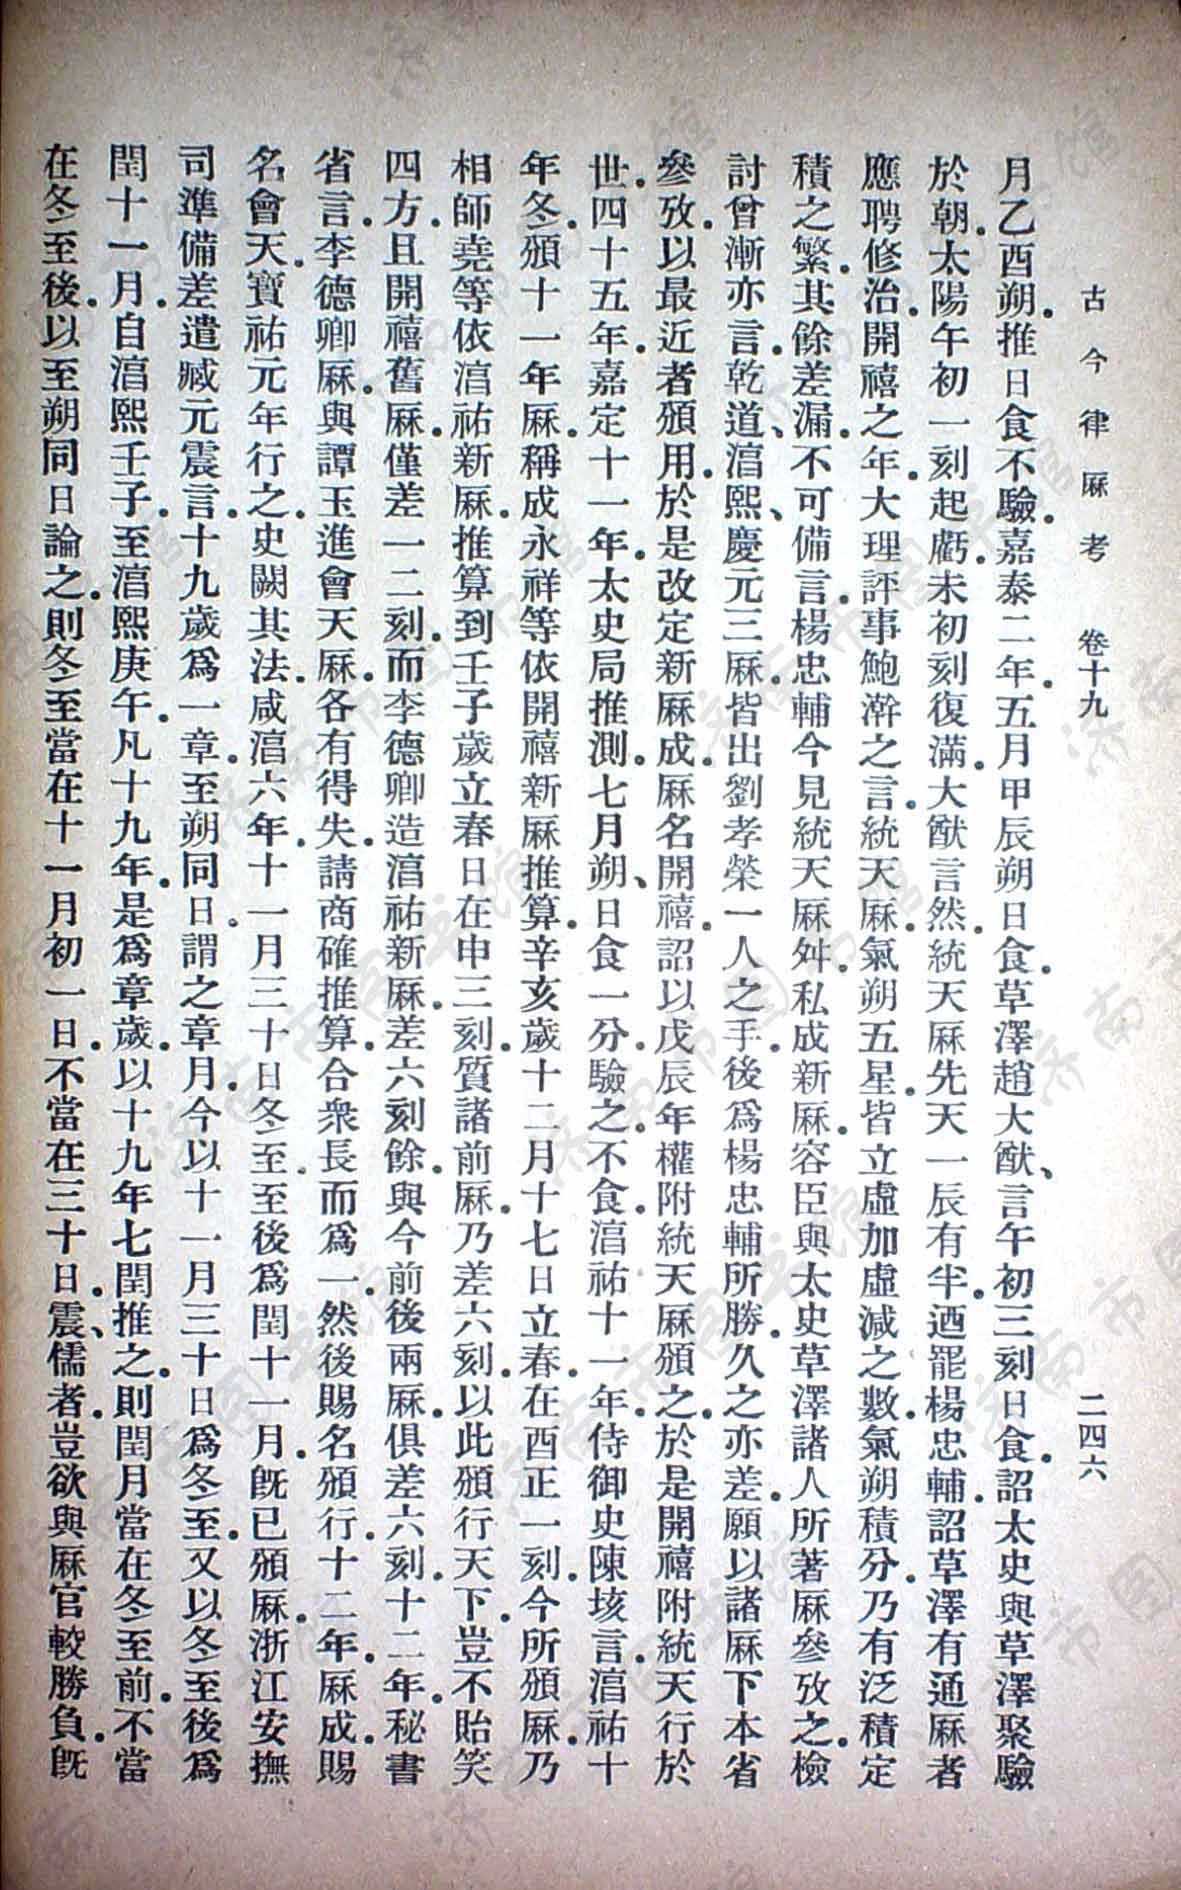 古今律厤考　卷十九　二四六
月乙酉朔.推日食不驗.嘉泰二年.五月甲辰朔日食.草澤趙大猷、言午初三刻日食.詔太史與草澤聚驗
於朝.太陽午初一刻起虧.未初刻復滿.大猷言然.統天厤先天一辰有半.迺罷楊忠輔.詔草澤有通厤者
應聘修治.開禧之年.大理評事鮑澣之言.統天厤.氣朔五星.皆立虛加虛減之數.氣朔積分.乃有泛積定
積之繁.其餘差漏.不可備言.楊忠輔今見統天厤舛.私成新厤.容臣與太史草澤諸人所著厤參攷之.檢
討曾漸亦言.乾道、湻熙、慶元三厤.皆出劉孝榮一人之手.後爲楊忠輔所勝.久之亦差.願以諸厤下本省
參攷.以最近者頒用.於是改定新厤.成厤名開禧.詔以戊辰年權附統天厤頒之.於是開禧附統天行於
世.四十五年.嘉定十一年.太史局推測.七月朔、日食一分.驗之不食.湻祐十一年.侍御史陳垓言.湻祐十
年冬.頒十一年厤.稱成永祥等依開禧新厤推算.辛亥歲十二月十七日立春.在酉正一刻.今所頒厤.乃
相師堯等依湻祐新厤.推算到壬子歲立春日在申三刻.質諸前厤.乃差六刻.以此頒行天下.豈不貽笑
四方.且開禧舊厤.僅差一二刻.而李德卿造湻祐新厤.差六刻餘.與今前後兩厤.俱差六刻.十二年.秘書
省言.李德卿厤.與譚玉進會天厤.各有得失.請商確推算.合衆長而爲一.然後賜名頒行.十二年.厤成.賜
名會天.寶祐元年行之.史闕其法.咸湻六年.十一月三十日冬至.至後爲閏十一月.旣已頒厤.浙江安撫
司準備差遣臧元震言.十九歲爲一章.至朔同日.謂之章月.今以十一月三十日爲冬至.又以冬至後爲
閏十一月.自湻熙壬子.至湻熙庚午.凡十九年.是爲章歲.以十九年七閏推之.則閏月當在冬至前.不當
在冬至後.以至朔同日論之.則冬至當在十一月初一日.不當在三十日.震、儒者.豈欲與厤官較勝負.旣